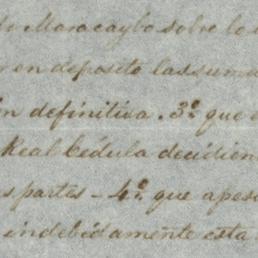 Maracaybo sobre lo
en deposito las sum
definitiva. 3.º que
Real Cédula decidien
partes - 4.º que apes
indebidamente esta